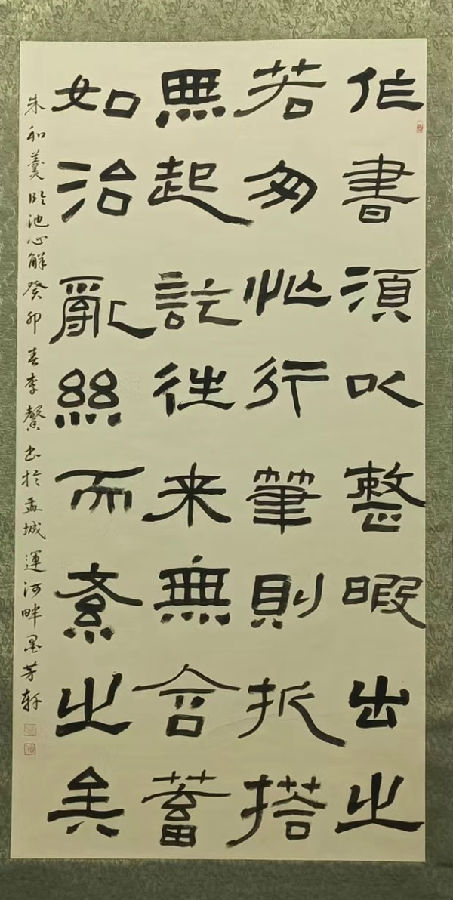 作書須以整暇出之
若匆忙行筆則折搭
無起訖往来無含蓄
如治亂絲而紊之矣
朱和羹临池心解癸卯春李馨书於盂城運河畔墨芳轩